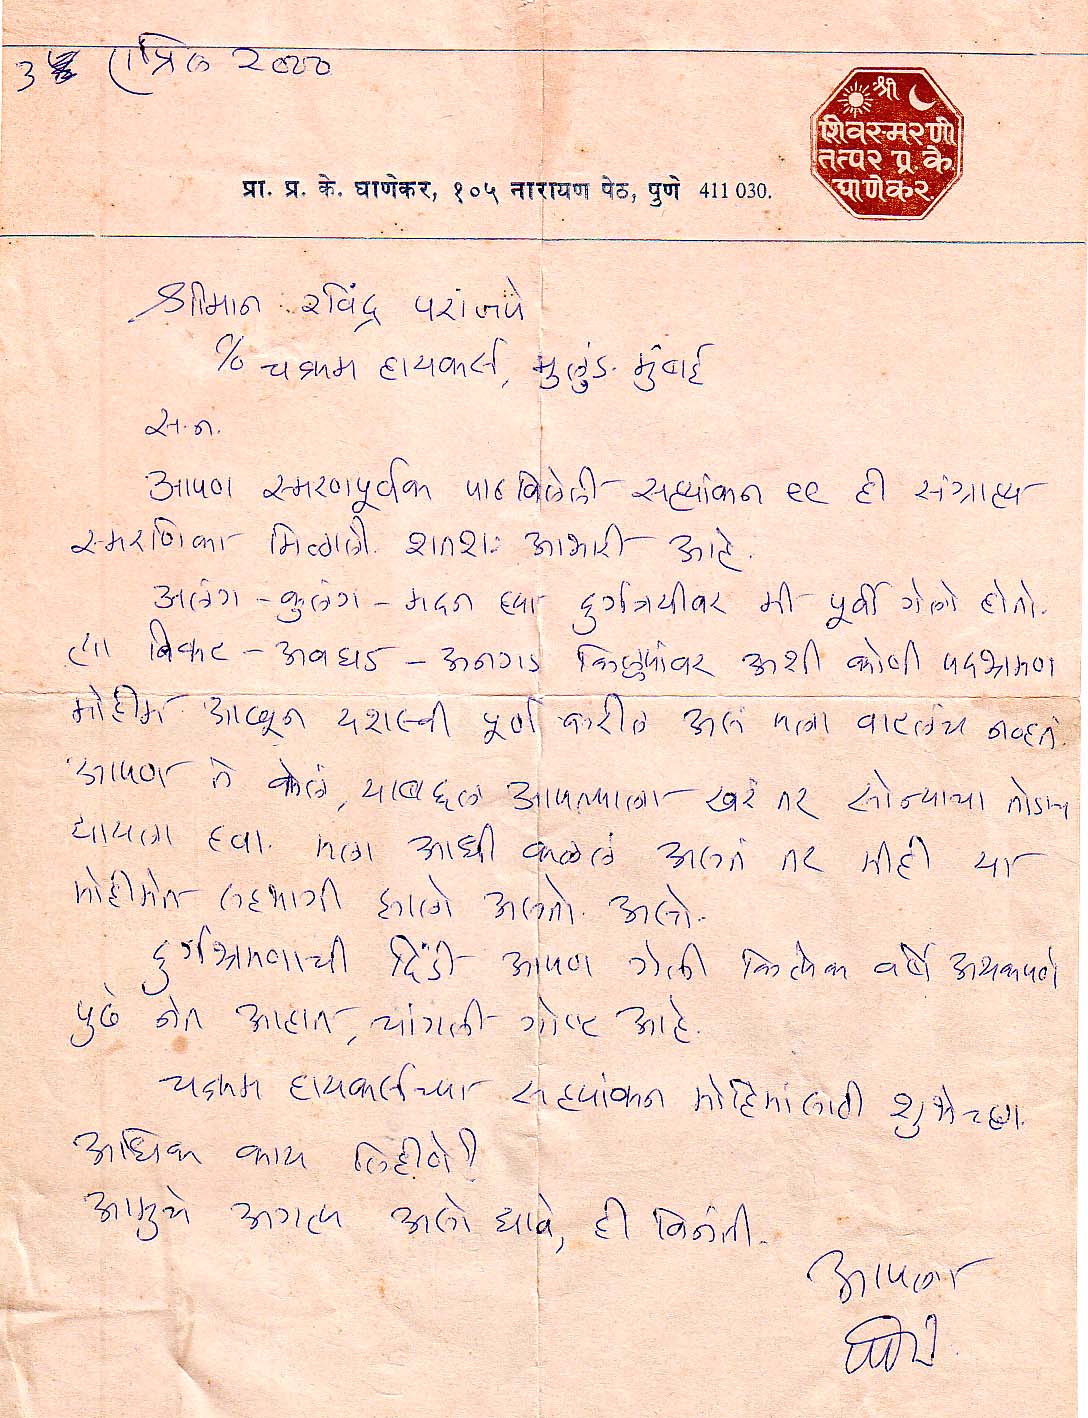 एप्रिल २०००
श्री
शिवस्मरणी
तत्पर प्र. के.
घाणेकर.
प्रा. प्र. के. घाणेकर, १०५ नारायण पेठ, पुणे 411 030.
श्रीमान रविंद्र परांजपे
c/o चक्रम हायकर्स, मुलुंड. मुंबई
स.न.
आपण स्मरणपूर्वक पाठविलेली सह्यांकन ९९ ही संग्राह्य
स्मरणिका मिळाली. शतशः आभारी आहे.
अलंग - कुलंग - मदन ह्या दुर्गत्रयीवर मी पूर्वी गेलो होतो.
या बिकट - अवघड - अनगड किल्ल्यांवर अशी कोणी पदभ्रमण
मोहीम आखून यशस्वी पूर्ण करील असं मला वाटलंच नव्हतं.
आपण ते केलं, याबद्दल आपल्याला खरं तर सोन्याचा तोडाच
द्यायला हवा. मला आधी कळलं असतं तर मीही या
मोहीमेत सहभागी झालो असतो. असो.
दुर्गभ्रमणाची दिंडी आपण गेली कित्येक वर्षे अथकपणे
पुढे नेत आहात, चांगली गोष्ट आहे.
चक्रम हायकर्सच्या सह्यांकन मोहिमांसाठी शुभेच्छा.
अधिक काय लिहीणे!
आमुचे अगत्य असो द्यावे, ही विनंती.
आपला